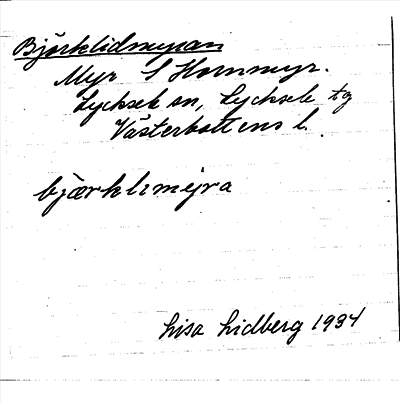 Björklidmyran
Myr S Hornmyr.
Lycksele sn, Lycksele tg
Västerbottens l.
bjærklimejra
Lisa Lidberg 1934